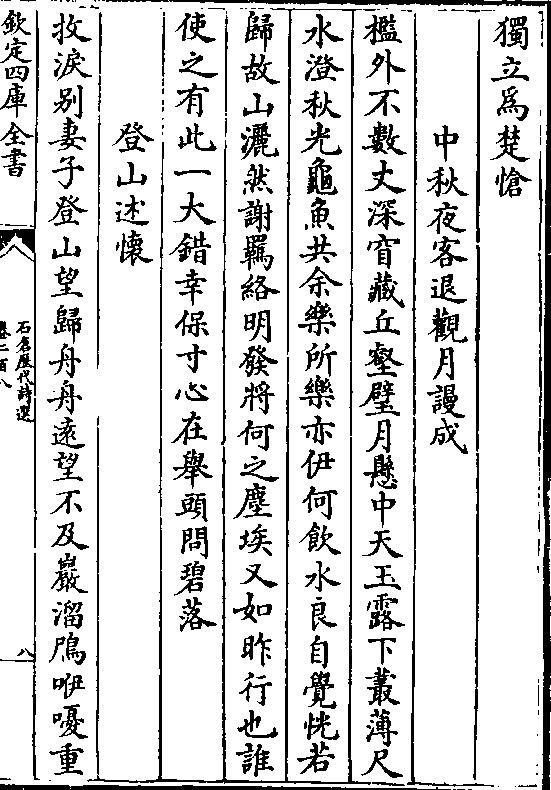 獨立爲楚愴
中秋夜客退觀月謾成
檻外不數丈深窅藏丘壑璧月懸中天玉露下叢薄尺
水澄秋光龜魚共余樂所樂亦伊何飲水良自覺恍若
歸故山灑然謝羈絡明發將何之塵埃又如昨行也誰
使之有此一大錯幸保寸心在舉頭問碧落
登山述懷
抆淚别妻子登山望歸舟舟遠望不及巖溜鳴咿嚘重
欽定四庫全書
石倉歷代詩選
卷二百八
八